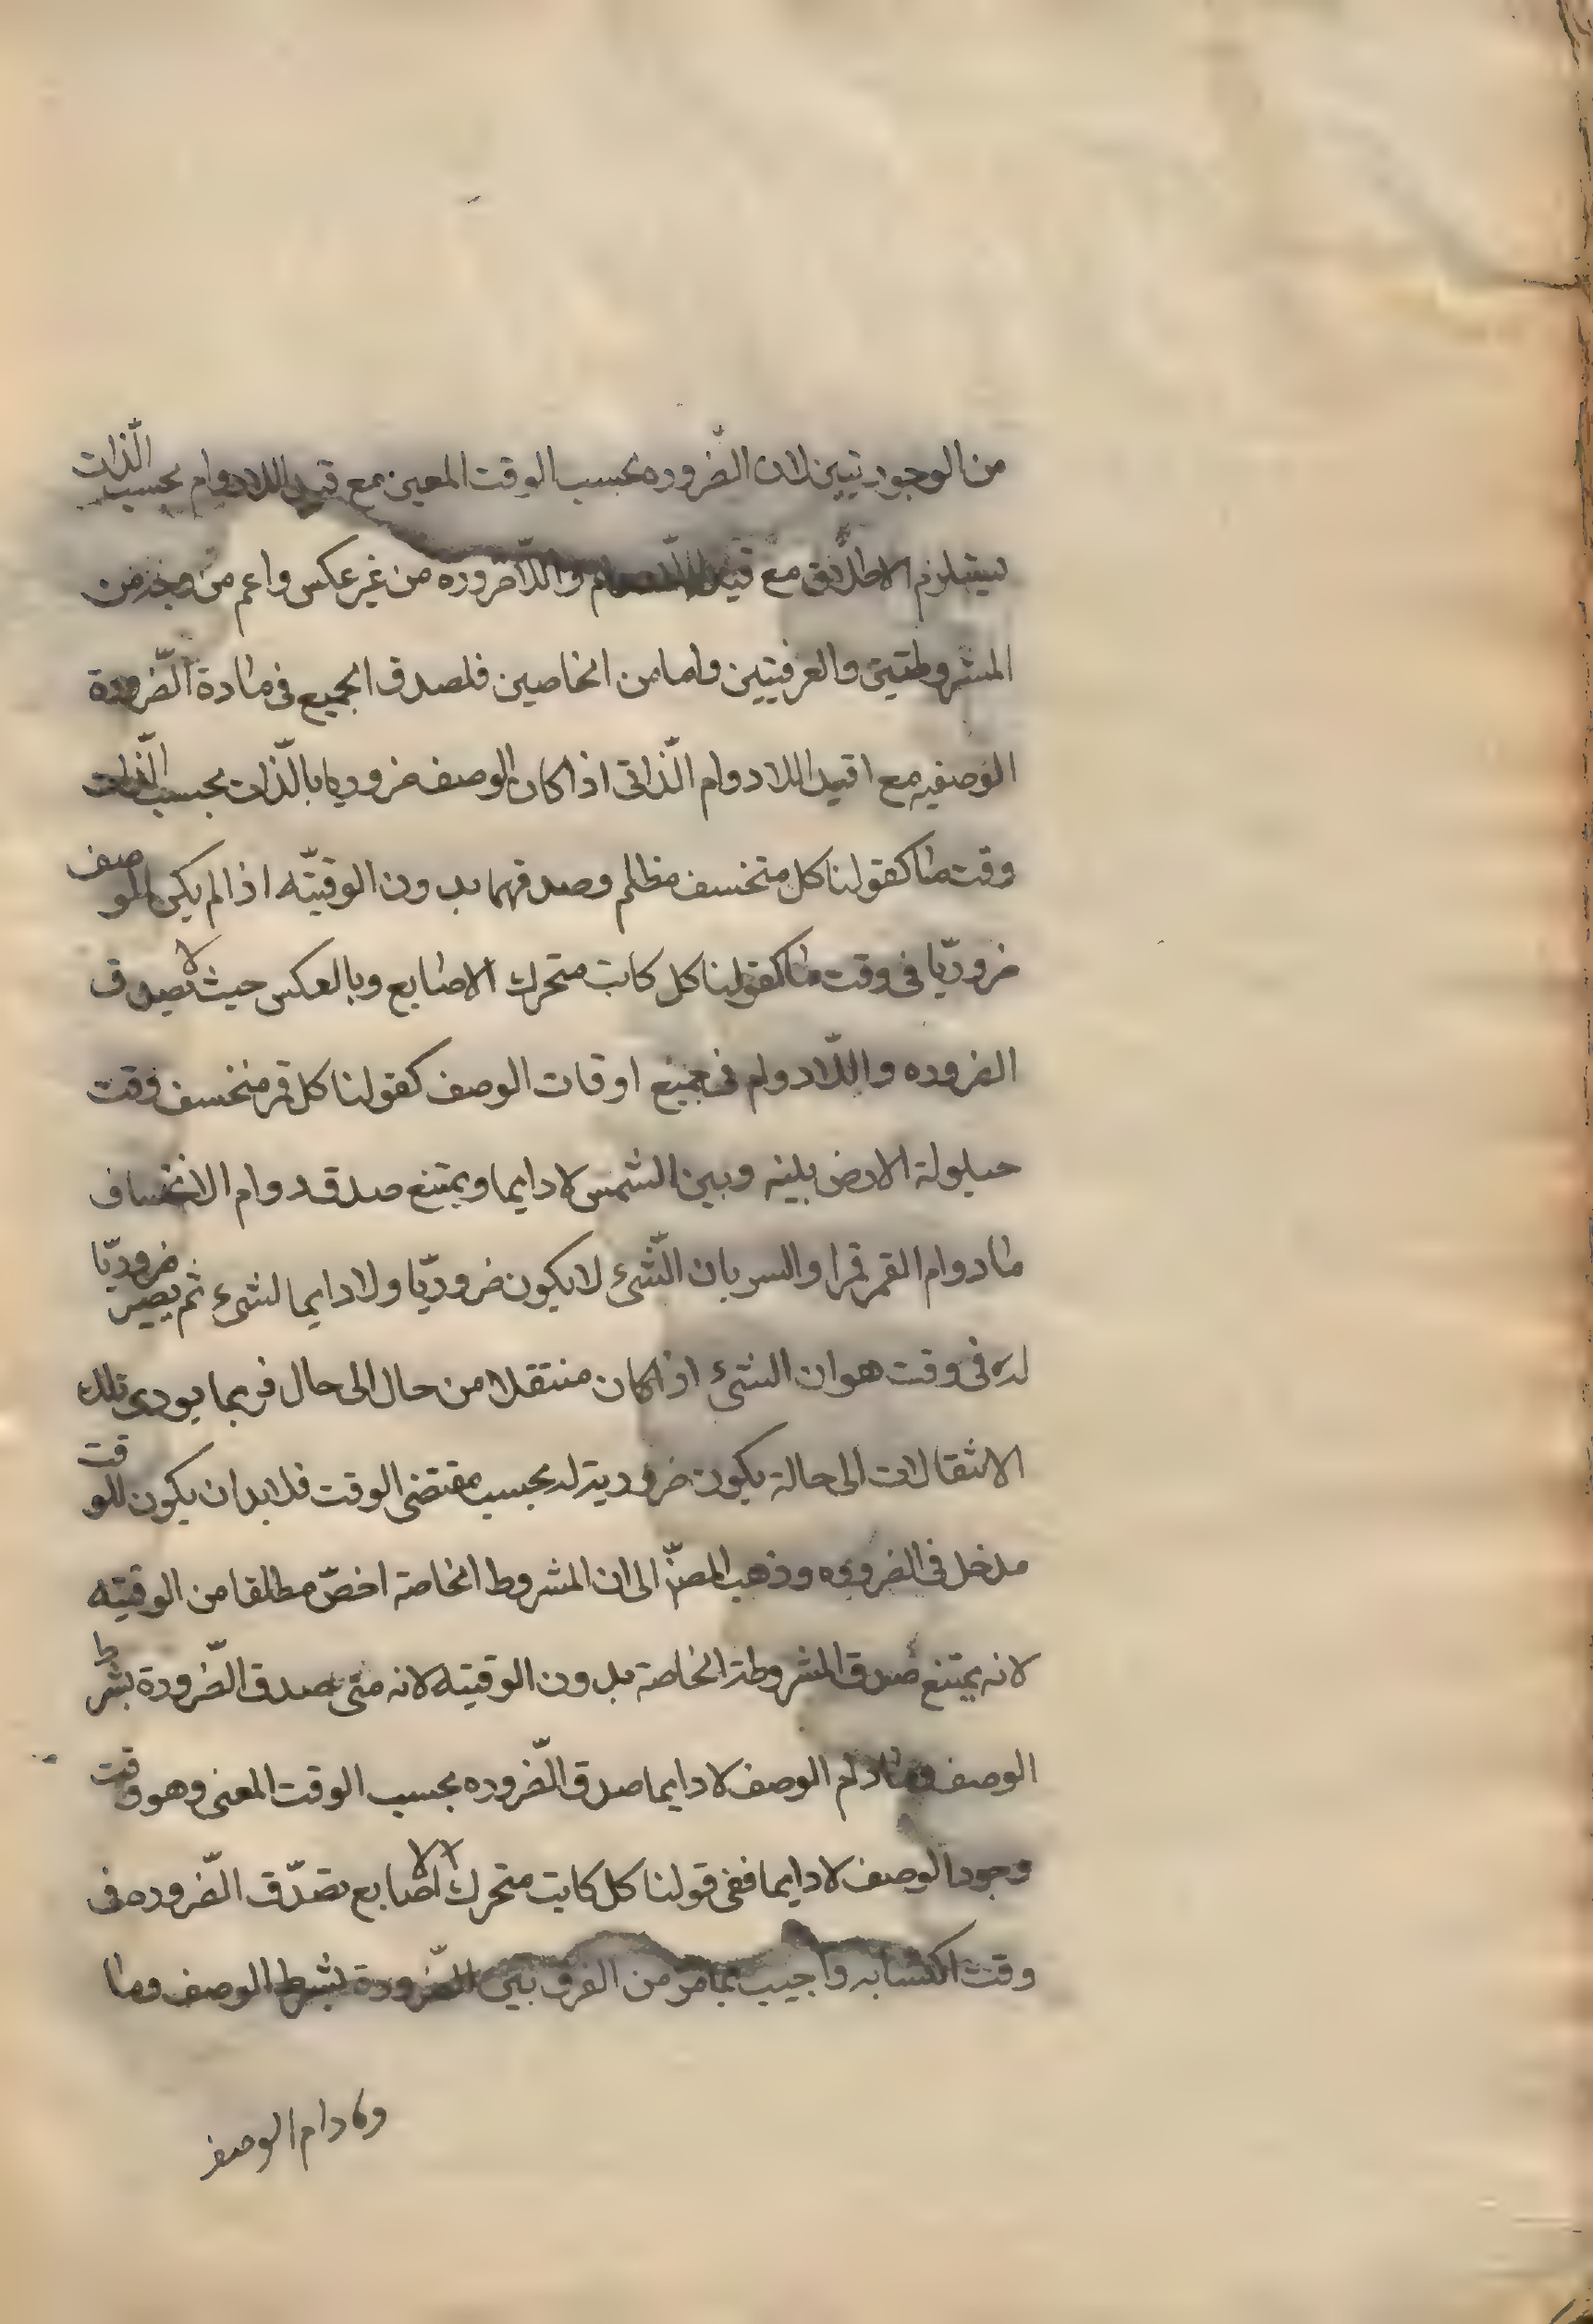 من الوجوديتين لان الضّروره بحسب الوقت المعين مع قيد اللادوام بحسب الّذات
يستلزم الاطلاق مع قيد واللّاضروره من غير عكس واعم من وجه من
المشروطتين والعرفيتين واما من الخاصين فلصدق الجميع فى مادة الّضرورة
الوصفيه مع اقيد اللادوام الّذاتى اذا كان الوصف ضروريا بالّذات بحسب الّذات
وقت ما كقولنا كل منخسف مظلم وصدقهما بدون الوقتيّه اذا لم يكن الموصف
ضروريّا فى وقت ما كقولنا كل كاتب متحرك الاصابع وبالعكس حيث لا يصدق
الضروره واللّادوام فى جميع اوقات الوصف كقولنا كل قمر منخسف وقت
حيلولة الارض بينه وبين الشمس لا دايما ويمتنع صدق دوام الانخساف
مادوام القمر قمرا والسر بان الّشئ لا يكون ضروريّا ولا دايما لشئ ثم يصير ضروريّا
له فى وقت هو ان الشئ اذا كان منتقلا من حال الى حال فربما يودى تلك
الانتقالات الى حالة يكون ضرورية له بحسب مقتضى الوقت فلا بد ان يكون للوقت
مدخل فى الضروره وذهب المصنّ الى ان المشروط الخاصة اخصّ مطلقا من الوقتيّه
لانه يمتنع صدق المشروطة الخاصة بدون الوقتيه لانه متى صدق الضّرورة بشرط
الوصف ومادام الوصف لا دايما صدق الّضروره بحسب الوقت المعنى وهو وقت
وجود الوصف لا دايما ففى قولنا كل كاتب متحرك الاصابع تصدّق الضّروره فى
وقت الكتابه واجيب بما مر من الفرق بين الضّرورة بشرط الوصف وما
وما دام الوصف